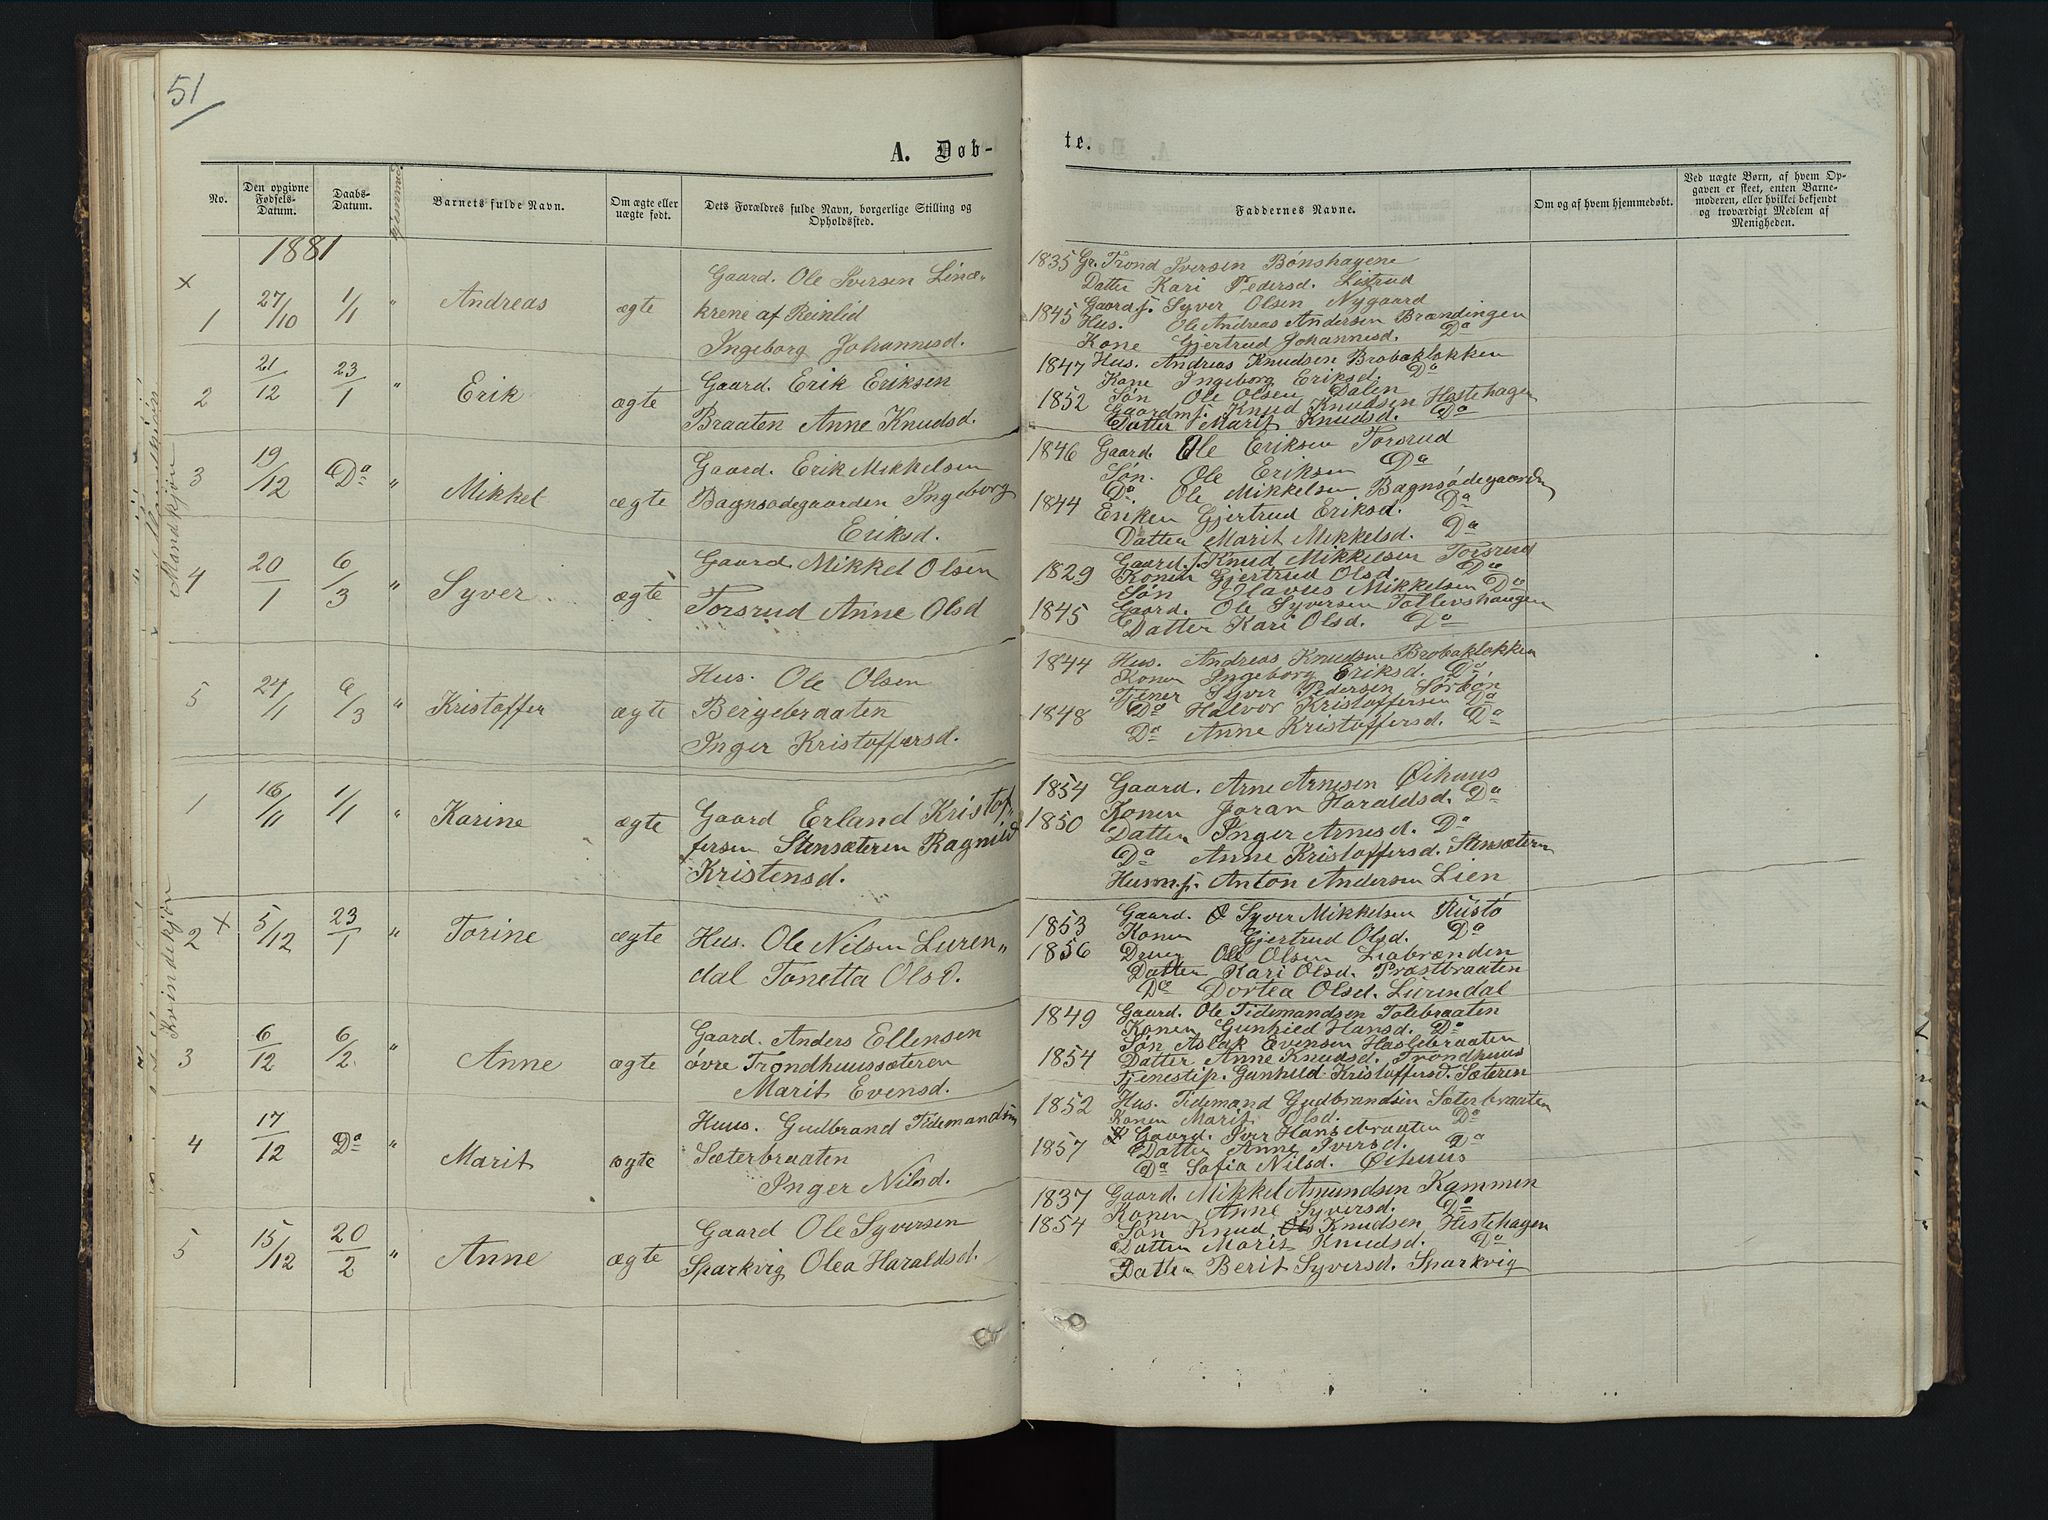 51
A. Døb-
No.
Den opgivne Fødsels-Datum.
Daabs-Datum.
Barnets fulde Navn.
Om ægte eller uægte født.
Dets Forældres fulde Navn, borgerlige Stilling og Opholdssted.
1881
Mandkjøn
x
1 27/10 1/1 " Andreas ægte
Gaard. Ole Iversen Linæ-
krene af Reinlid
Ingeborg Johannesd.
2 21/12 23/1 " Erik ægte
Gaard. Erik Eriksen
Braaten Anne Knudsd.
3 19/12 Do " Mikkel ægte
Gaard. Erik Mikkelsen
Bagnsødegaarden Ingeborg
Eriksd.
4 20/1 6/3 " Syver ægte
Gaard. Mikkel Olsen
Torsrud Anne Olsd
5 24/1 6/3 " Kristoffer ægte
Hus. Ole Olsen
Bergebraaten
Inger Kristoffersd.
Kvindekjøn
1 16/11 1/1 " Karine ægte
Gaard Erland Kristof-
fersen Stensæteren Ragnild
Kristensd.
2 x 5/12 23/1 " Torine ægte
Hus. Ole Nilsen Luren"
dal Tonetta Olsd.
3 6/12 6/2 " Anne ægte
Gaard. Anders Ellensen
øvre Trondhuussæteren
Marit Evensd.
4 17/12 Do " Marit ægte
Huus. Gudbrand Tidemandsen
Sæterbraaten
Inger Nilsd.
5 15/12 20/2 " Anne ægte
Gaard Ole Syversen
Sparkvig Olea Haraldsd.
te.
Faddernes Navne.
Om og af hvem hjemmedøbt.
Ved uægte Børn, af hvem Opgaven er skeet, enten Barnemoderen, eller hvilket bekjendt og troværdigt Medlem af Menigheden.
1835 Gr. Trond Iversen Bønshagene
Datter Kari Pedersd. Listrud
1845 Gaardf. Syver Olsen Nygaard
Hus. Ole Andreas Andersen Brændingen
Kone Gjertrud Johannesd. Do
1847 Hus. Andreas Knudsen Brobakløkken
Kone Ingeborg Eriksd. Do
1852 Søn Ole Olsen Dalen
Gaardmf. Knud Knudsen Hestehagen
Datter Marit Knudsd. Do
1846 Gaard. Ole Eriksen Torsrud
Søn. Ole Eriksen Do
Do. Ole Mikkelsen Bagnsødegaarden
1844 Enken Gjertrud Eriksd. Do
Datter Marit Mikkelsd. Do
Gaard.f. Knud Mikkelsen Torsrud
1829 Konen Gjertrud Olsd. Do
Søn Olavus Mikkelsen Do
1845 Gaard. Ole Syversen Tollevshaugen
Datter Kari Olsd. Do
1844 Hus. Andreas Knudsen Brobakløkken
Konen Ingeborg Eriksd. Do
Tjener Syver Pedersen Sørbøn
1848 Do Halvor Kristoffersen Do
Do Anne Kristoffersd. Do
1854 Gaard. Arne Arnesen Øihuus
Konen Joran Haraldsd. Do
1850 Datter Inger Arnesd. Do
Do Anne Kristoffersd. Stensætern
Husm.f. Anton Andersen Lien
Gaard. Syver Mikkelsen Rustø
1853 Konen Gjertrud Olsd. Do
1856 Dreng Ole Olsen Liabrænden
Datter Kari Olsd. Præstbraaten
Do Dortea Olsd. Lurendal
1849 Gaard. Ole Tidemandsen Tolebraaten
Konen Gunhild Hansd. Do
Søn Aslak Evensen Haslebraaten
1854 Datter Anne Knudsd. Trondhuus
Tjenestip. Gunhild Kristoffersd. Sæteren
1852 Hus. Tidemand Gudbrandsen Sæterbraaten
Konen Marit Olsd. Do
Gaard. Iver Hansebraaten Do
1857 Datter Anne Iversd. Do
Do Sofia Nilsd. Øihuus
1837 Gaard. Mikkel Amundsen Kammen
Konen Anne Syversd. Do
1854 Søn Knud Knudsen Hestehagen
Datter Marit Knudsd. Do
Datter Berit Syversd. Sparkvig